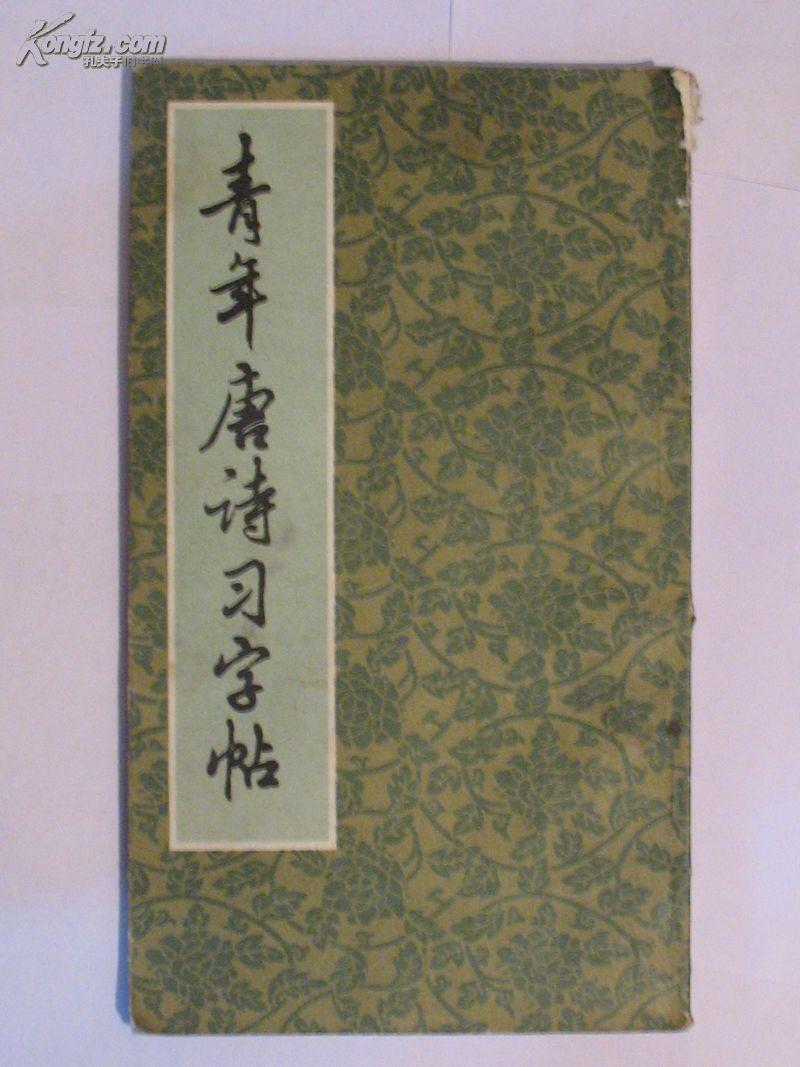 Kongfz.com
孔夫子旧书网
青年唐诗习字帖